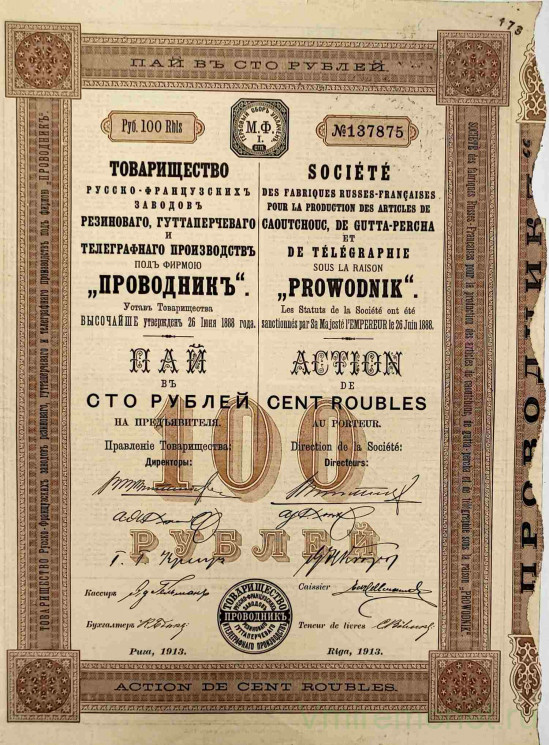 178
ПАЙ ВЪ СТО РУБЛЕЙ.
Руб. 100 Rbls
ГЕРБОВЫЙ СБОРЪ НАЛИЧН.
М.Ф.
I.
СПБ.
№137875
ТОВАРИЩЕСТВО
РУССКО-ФРАНЦУЗСКИХЪ
ЗАВОДОВЪ
РЕЗИНОВАГО, ГУТТАПЕРЧЕВАГО
И
ТЕЛЕГРАФНАГО ПРОИЗВОДСТВЪ
ПОДЪ ФИРМОЮ
„ПРОВОДНИКЪ“.
Уставъ Товарищества
ВЫСОЧАЙШЕ утвержденъ 26 Іюня 1888 года.
ПАЙ
ВЪ
СТО РУБЛЕЙ
НА ПРЕДЪЯВИТЕЛЯ.
Правленіе Товарищества:
Директоры:
SOCIÉTÉ
DES FABRIQUES RUSSES-FRANÇAISES
POUR LA PRODUCTION DES ARTICLES DE
CAOUTCHOUC, DE GUTTA-PERCHA
ET
DE TÉLÉGRAPHIE
SOUS LA RAISON
„PROWODNIK“.
Les Statuts de la Société ont été
sanctionnés par Sa Majesté l'EMPEREUR le 26 Juin 1888.
ACTION
DE
CENT ROUBLES
AU PORTEUR.
Direction de la Société:
Directeurs:
100
РУБЛЕЙ
Кассиръ
Caissier
Бухгалтеръ
Teneur de livres
ТОВАРИЩЕСТВО
РУССКО-ФРАНЦУЗСКИХЪ
ЗАВОДОВЪ
РЕЗИНОВАГО
ПРОВОДНИКЪ
ГУТТАПЕРЧЕВАГО
И ТЕЛЕГРАФНАГО ПРОИЗВОДСТВЪ
Рига, 1913.
Riga, 1913.
ACTION DE CENT ROUBLES.
ТОВАРИЩЕСТВО Русско-Французскихъ заводовъ резиноваго, гуттаперчеваго и телеграфнаго производствъ подъ фирмою „ПРОВОДНИКЪ“
SOCIÉTÉ des fabriques Russes-Françaises pour la production des articles de caoutchouc, de gutta-percha et de télégraphie sous la raison „PROWODNIK“